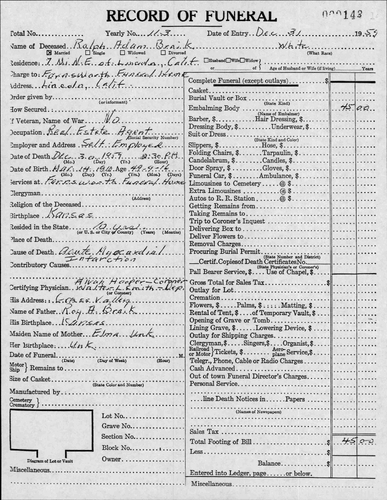 RECORD OF FUNERAL
Total No. Yearly No. 143 Date of Entry Dec. 31 19 59
Name of Deceased Ralph Adam Braik White
Married Single Widowed Divorced (What Race)
Residence: 7 Mi. N.E. of Lincoln, Calif. Husband Wife of
Age of Husband or Wife (if living)
Charge to: Farnsworth Funeral Home
Address: Lincoln, Calif.
Order given by
(or informant)
How Secured
If Veteran, Name of War No
Occupation Real Estate Agent
(Social Security Number)
Employer and Address Self Employed
Date of Death Dec. 30, 1959 P.M.
Date of Birth
Services at Farnsworth Funeral Home
Clergyman
Religion of the Deceased
Birthplace Kansas
Resided in the State 10 years
Place of Death
Cause of Death Acute Myocardial
Infarction
Contributory Causes
Certifying Physician
His Address Grass Valley
Name of Father Roy A. Braik
His Birthplace Kansas
Maiden Name of Mother Elma Unk
Her Birthplace Unk
Date of Funeral
(Date) (Day of Week) (Hour)
Motor
Ship Remains to
Size of Casket
(State Color and Number)
Manufactured by
Cemetery
Crematory
Lot No.
Grave No.
Section No.
Block No.
Owner
Diagram of Lot or Vault
Miscellaneous
Complete Funeral (except outlays)
Casket
Burial Vault or Box
(State Kind)
Embalming Body 45 00
(State Kind of Embalming)
Barber, $ Hair Dressing, $
Dressing Body, $ Underwear, $
Suit or Dress
(State kind and color)
Slippers, $ Hose, $
Folding Chairs, $ Tarpaulin, $
Candelabrum, $ Candles, $
Door Spray, $ Gloves, $
Funeral Car, $ Ambulance, $
Limousines to Cemetery @ $
Extra Limousines @ $
Autos to R. R. Station @ $
Getting Remains from
Taking Remains to
Trip to Coroner's Inquest
Delivering Box to
Deliver Flowers to
Removal Charges
Procuring Burial Permit
(State Number and District)
Certif. Copies of Death Certificate No.
(State Physician's or Coroner's)
Pall Bearer Service, $ Use of Chapel, $
Gross Total for Sales Tax
Outlay for Lot
Cremation
Flowers, $ Palms, $ Matting, $
Rental of Tent, $ of Temporary Vault, $
Opening of Grave or Tomb
Lining Grave, $ Lowering Device, $
Outlay for Shipping Charges
Clergyman, $ Singers, $ Organist, $
Railroad or Motor Tickets, $ Aeroplane Service, $
Telegr., Phone, Cable or Radio Charges
Cash Advanced
Out of town Funeral Director's Charges
Personal Service
line Death Notices in Papers
(Names of Newspapers)
Sales Tax
Total Footing of Bill 45 00
Less
Balance
Entered into Ledger, page or below.
Miscellaneous